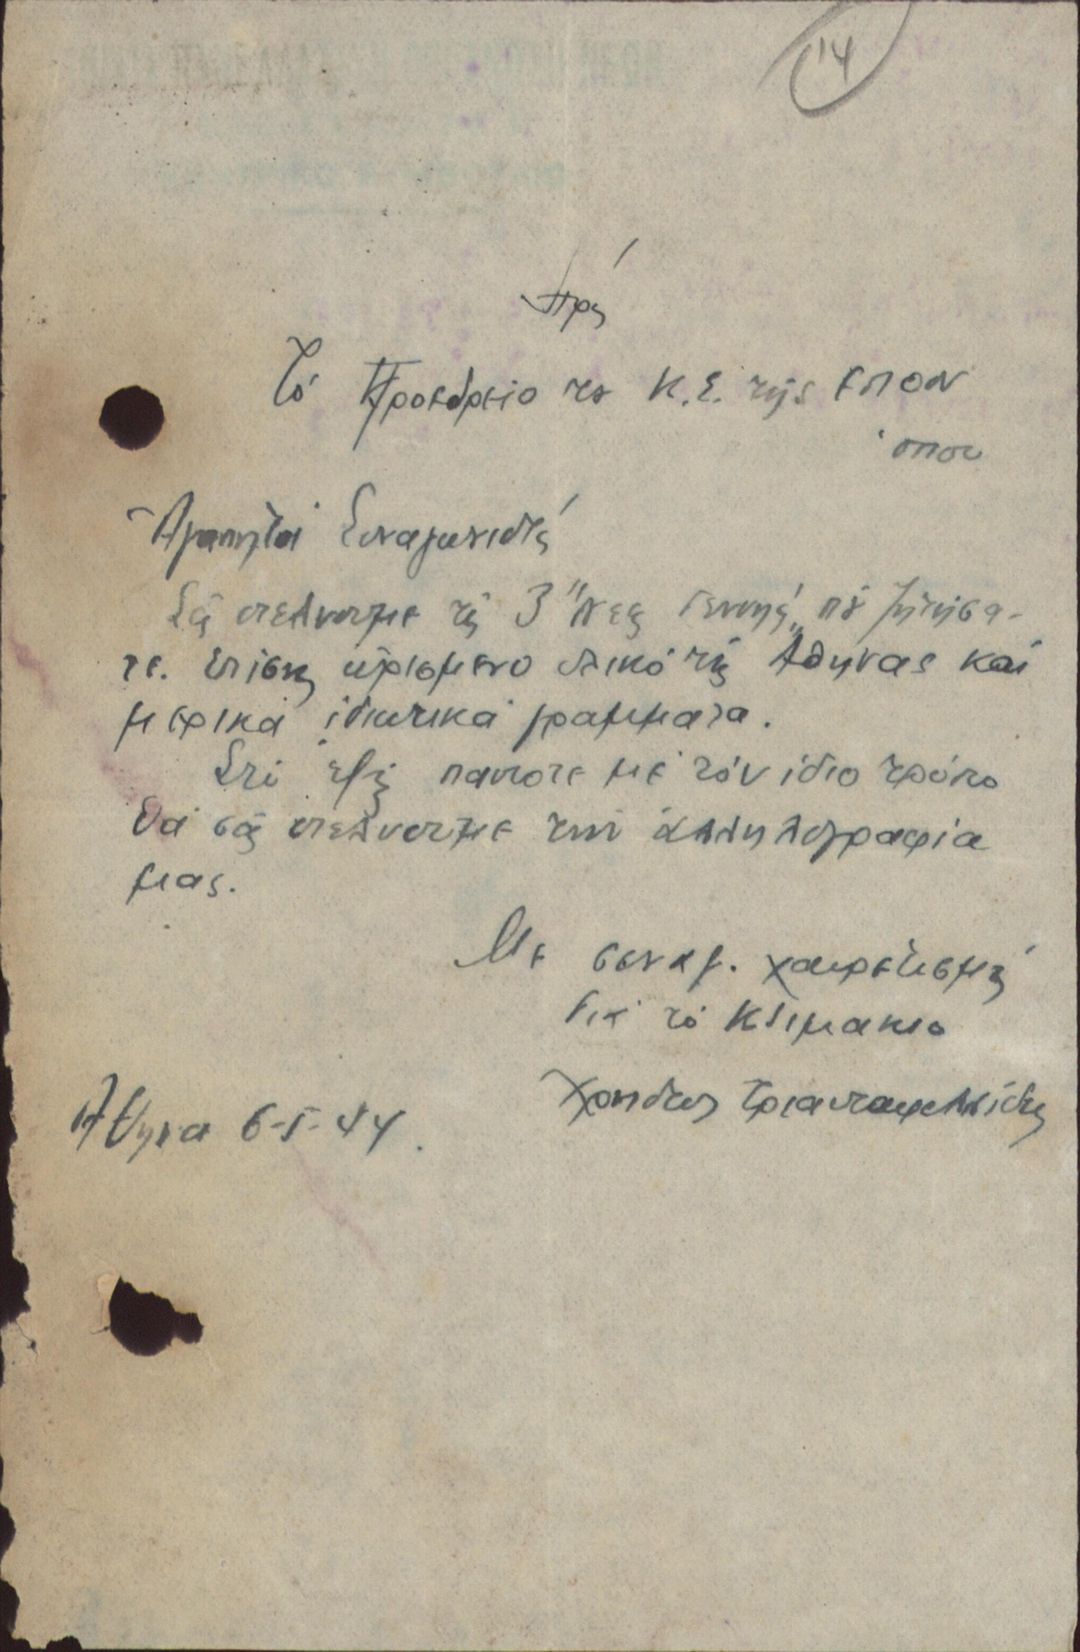 14
Πρός
Τό Προεδρείο του Κ.Σ. τής ΕΠΟΝ
όπου
Ἀγαπητοί Συναγωνιστές
Σᾶς στέλνουμε τίς 3 "Νέες Γενιές" πού ζητήσα-
τε. Επίσης ὡρισμένο υλικό τῆς Αθήνας καί
μερικά ἰδιωτικά γραμματα.
Στό ἑξῆς παντοτε μέ τόν ίδιο τρόπο
θά σᾶς στέλνουμε τήν ἀλληλογραφία
μας.
Με συναγ. χαιρετισμούς
Γιά τό Κλιμακιο
Χρηστος Τριανταφυλλίδης
Αθηνα 6-5-44.